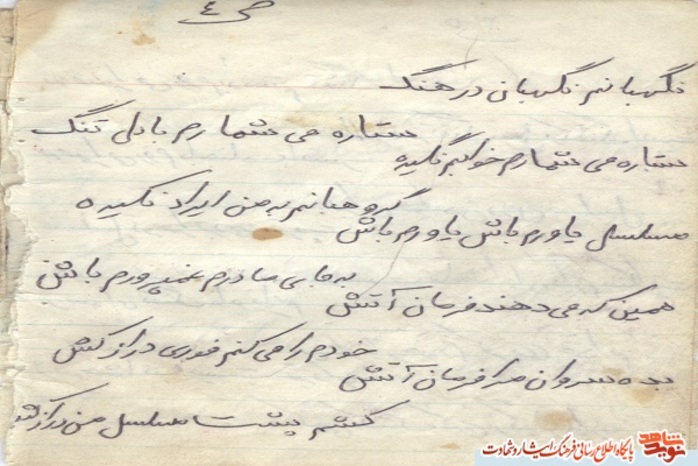 ص ٤
نگهبانم نگهبان در هنگ
ستاره می شمارم با دل تنگ
ستاره می شمارم خوابم نگیده
گروهبانم به من ایراد نگیده
مسلسل یاورم باش یاورم باش
به جای مادرم غمپرورم باش
همین که می دهند فرمان آتش
خودم را می کنم فوری درازکش
بده سروان مرا فرمان آتش
کشم پشت مسلسل من درازکش
نوید شاهد
پایگاه اطلاع رسانی فرهنگ ایثار و شهادت